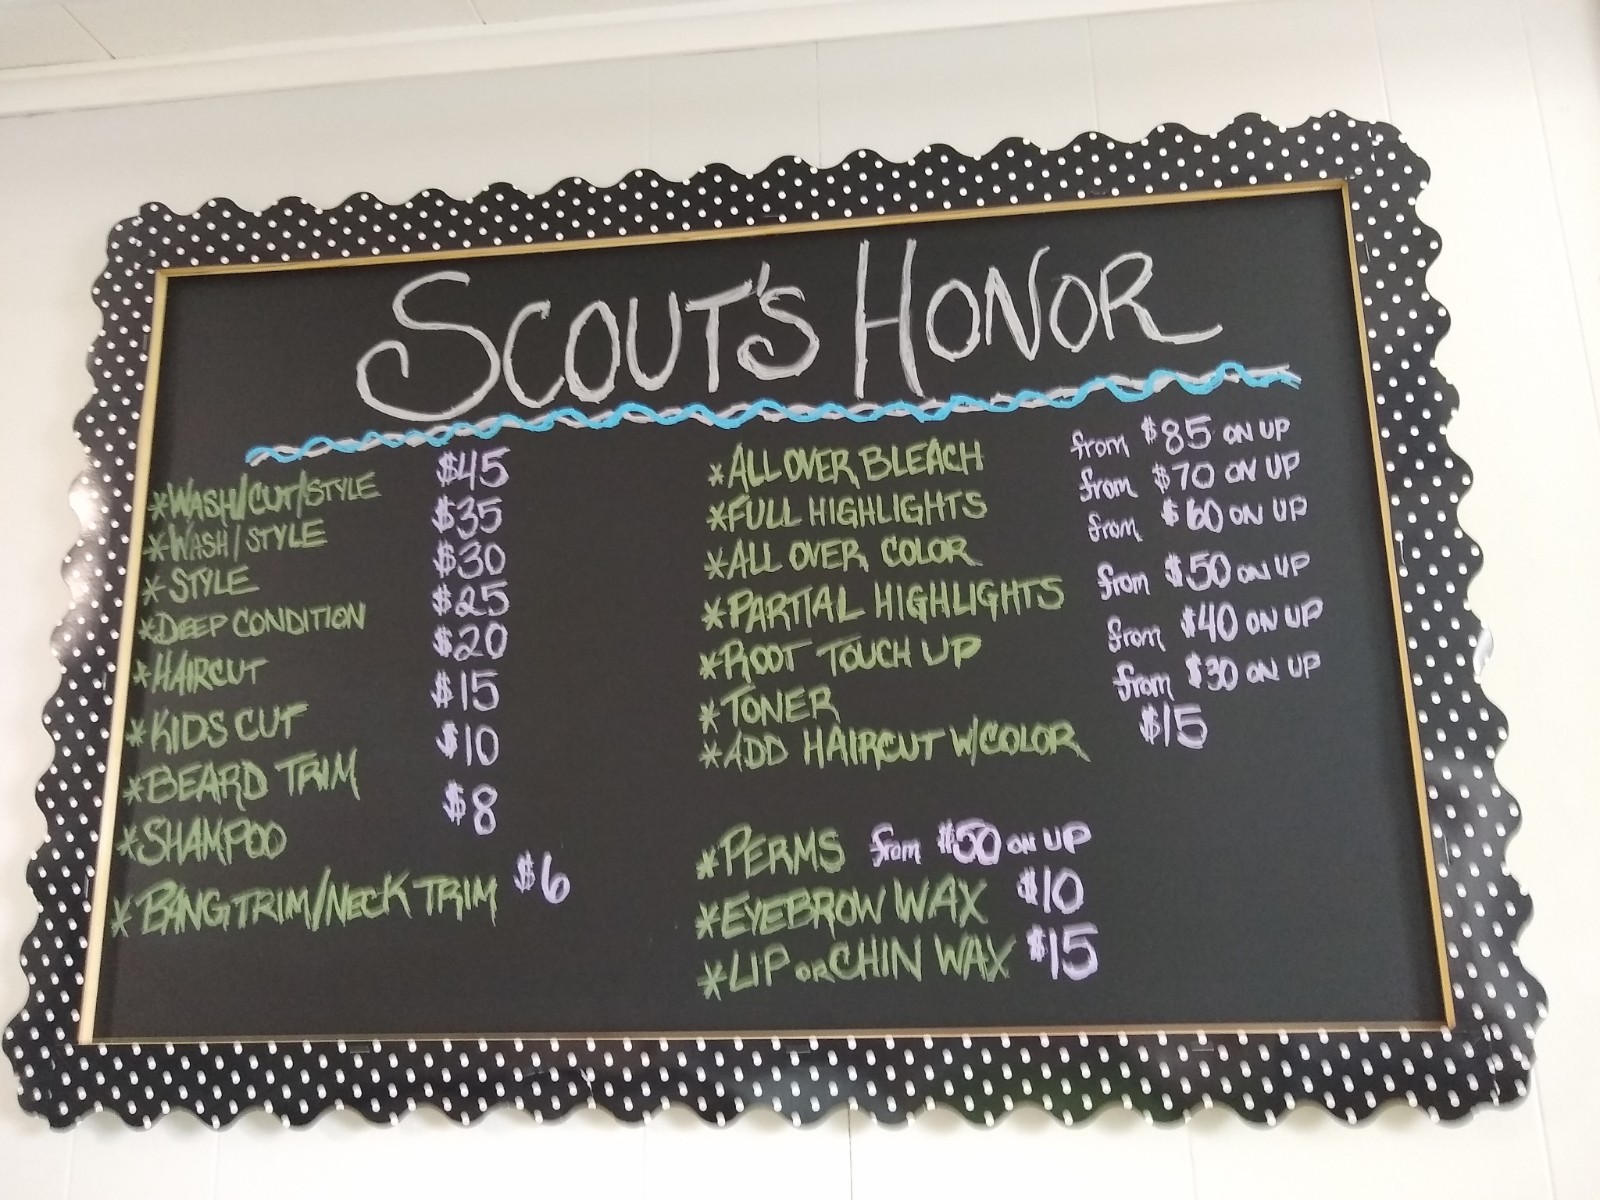 SCOUT'S HONOR
*WASH/CUT/STYLE $45
*WASH/STYLE $35
*STYLE $30
*DEEP CONDITION $25
*HAIRCUT $20
*KIDS CUT $15
*BEARD TRIM $10
*SHAMPOO $8
*BANG TRIM/NECK TRIM $6
*ALL OVER BLEACH from $85 ON UP
*FULL HIGHLIGHTS from $70 ON UP
*ALL OVER COLOR from $60 ON UP
*PARTIAL HIGHLIGHTS from $50 ON UP
*ROOT TOUCH UP from $40 ON UP
*TONER from $30 ON UP
*ADD HAIRCUT W/COLOR $15
*PERMS from $50 ON UP
*EYEBROW WAX $10
*LIP OR CHIN WAX $15